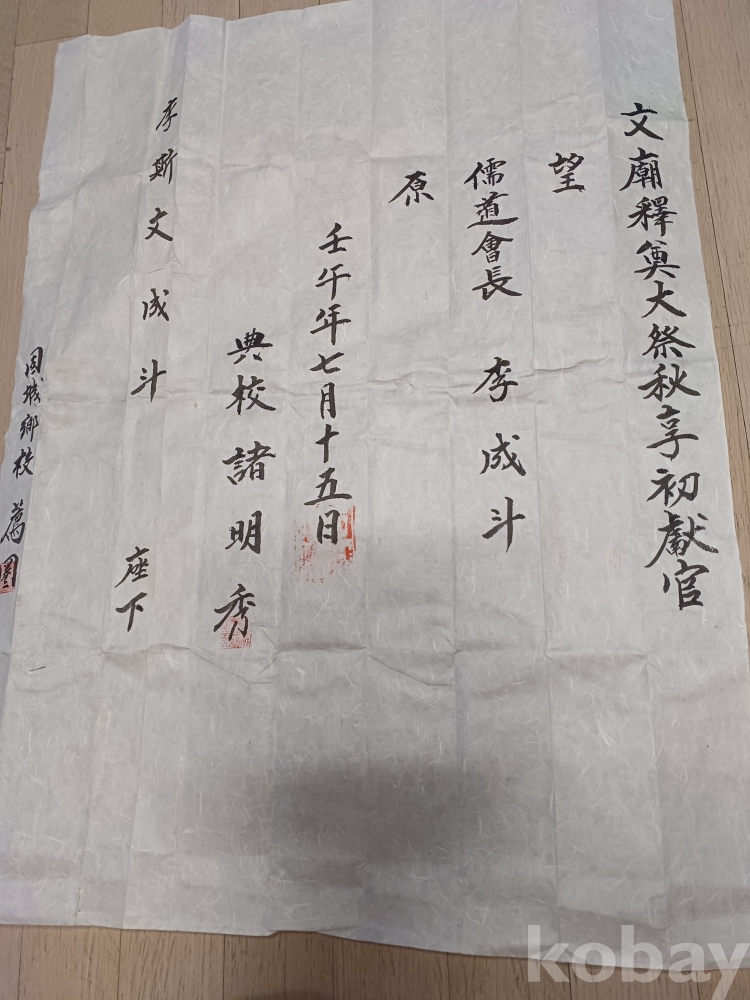 文廟釋奠大祭秋享初獻官
望
儒道會長 李成斗
原
壬午年七月十五日
典校諸明秀
李斯文成斗 座下
固城鄕校 薦
kobay